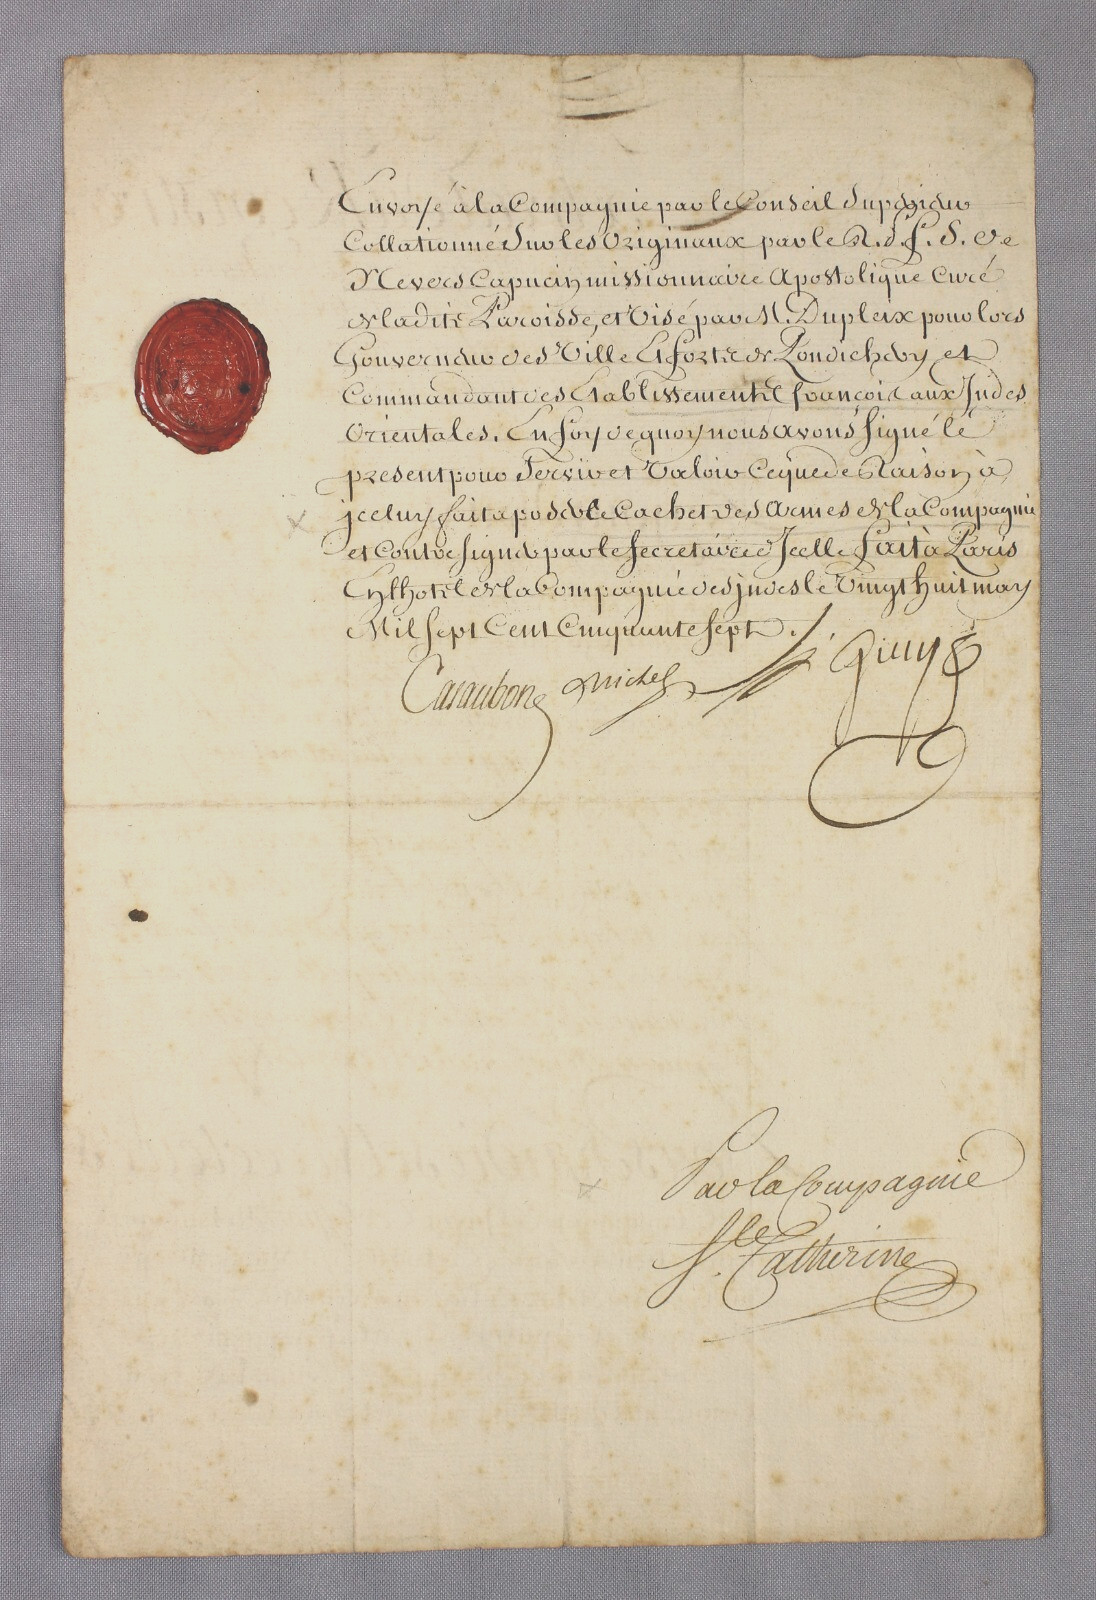 Envoyé à la Compagnie par le Conseil Superieur
Collationné sur les Originaux par le R. P. f. D. de
Nevers Capucin missionnaire Apostolique Curé
de ladite Paroisse, et Visé par M. Dupleix pour lors
Gouverneur des Ville Et fortz de Pondichery et
Commandant des Etablissements françois aux Indes
Orientales. En foy de quoy nous avons signé le
present pour Servir et Valoir Ceque de Raison à
jceluy fait aposer le Cachet des Armes de la Compagnie
et Contresigner par le Secretaire d'Jcelle fait à Paris
En lhotel de la Compagnie des jndes le Vingt huit may
Mil sept Cent Cinquante sept.
Casaubon Michel Gilly
Par la Compagnie
Ste. Catherine